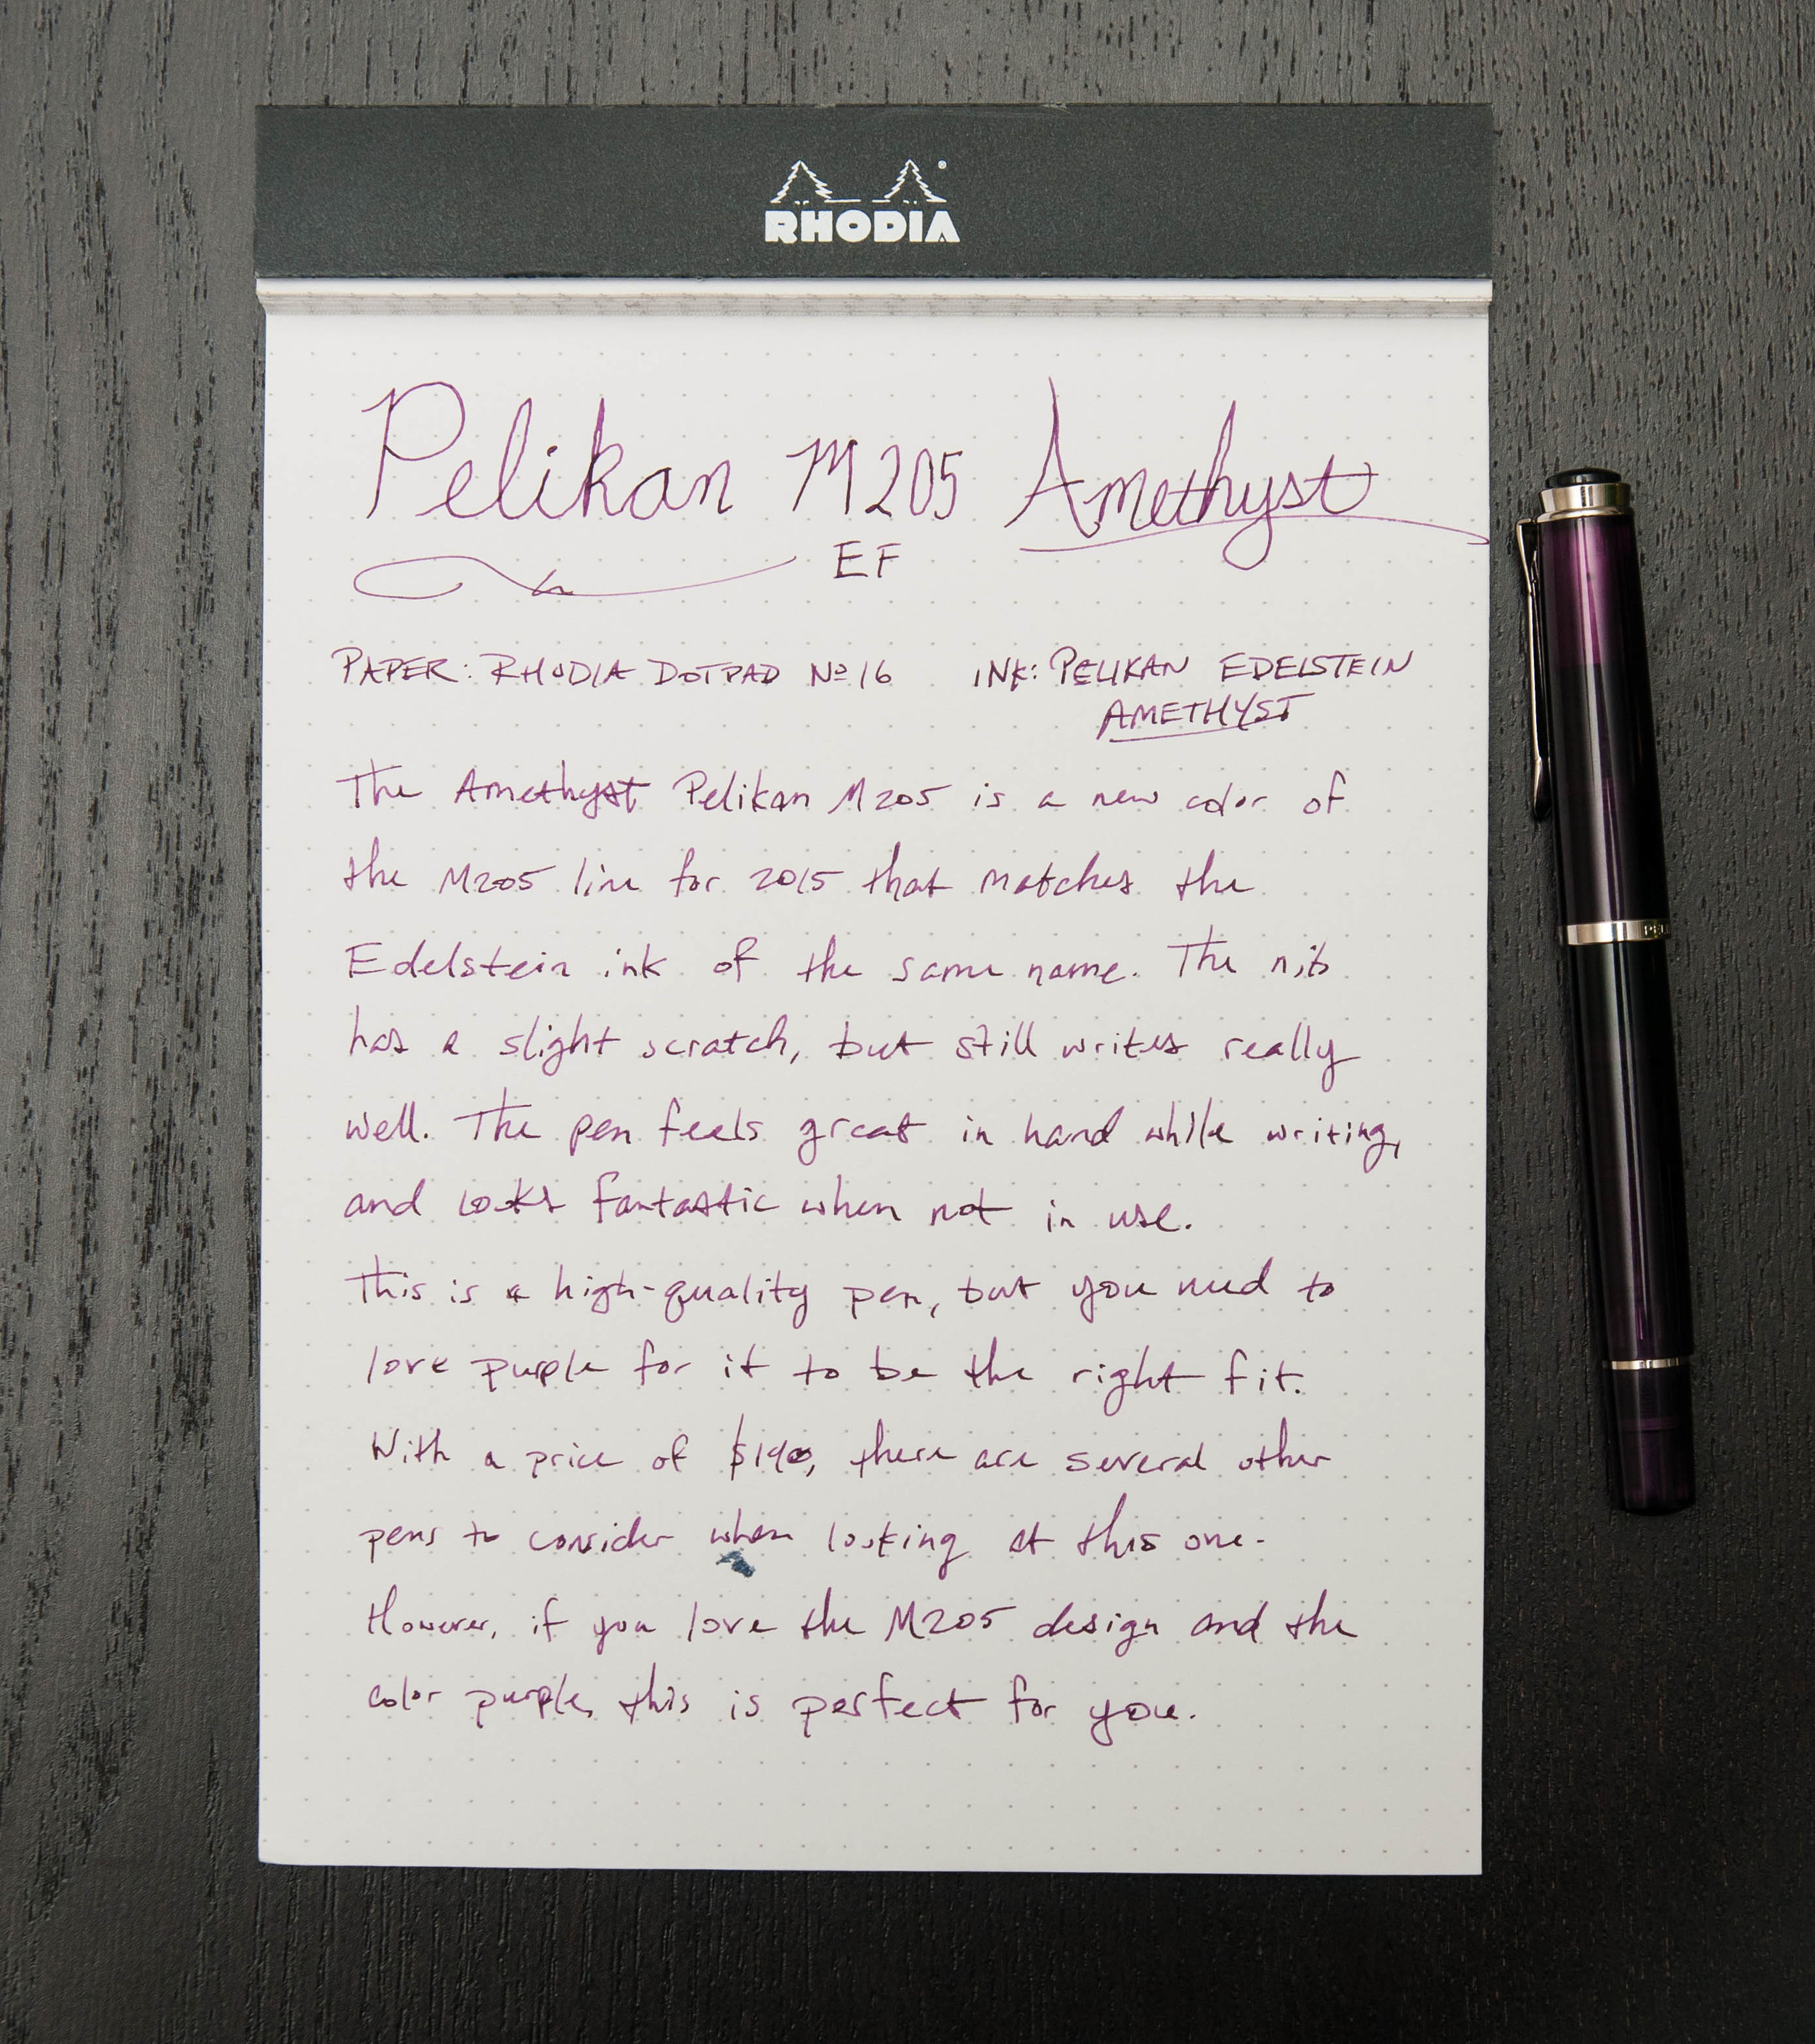 RHODIA
Pelikan M205 Amethyst
EF
PAPER: RHODIA DOTPAD Nº 16 INK: PELIKAN EDELSTEIN
AMETHYST
The Amethyst Pelikan M205 is a new color of
the M205 line for 2015 that matches the
Edelstein ink of the same name. The nib
has a slight scratch, but still writes really
well. The pen feels great in hand while writing,
and looks fantastic when not in use.
This is a high-quality pen, but you need to
love purple for it to be the right fit.
With a price of $190, there are several other
pens to consider when looking at this one.
However, if you love the M205 design and the
color purple, this is perfect for you.